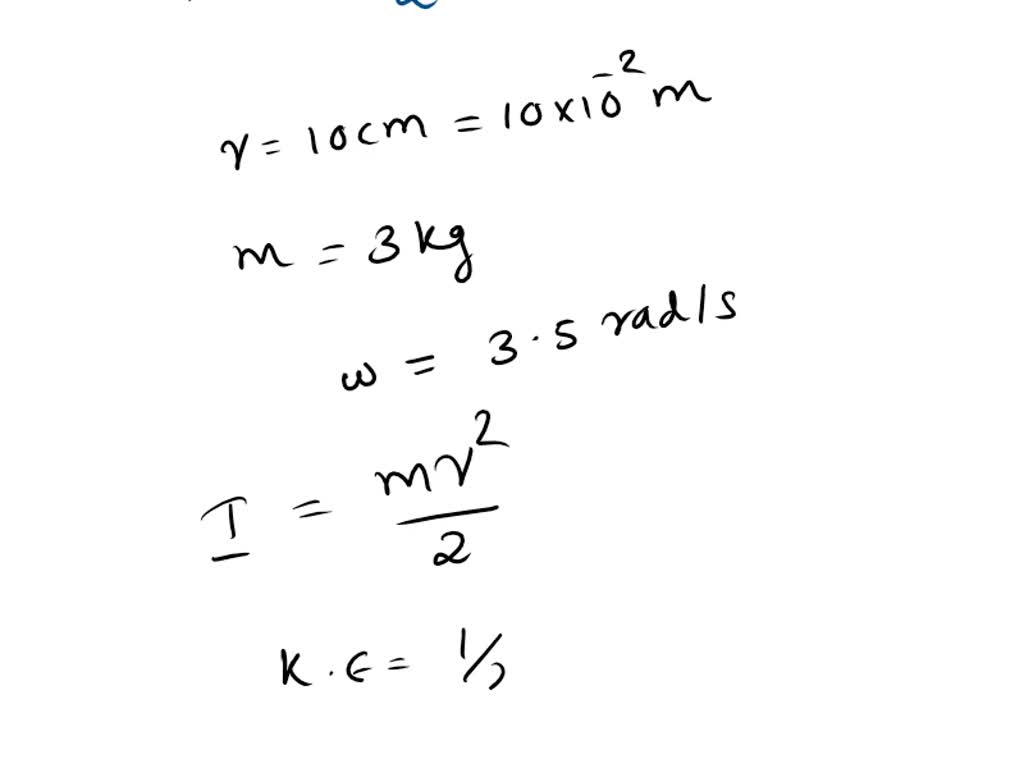 r = 10cm = 10×10⁻² m
m = 3kg
ω = 3.5 rad/s
I = mr²/2
K.E = 1/2